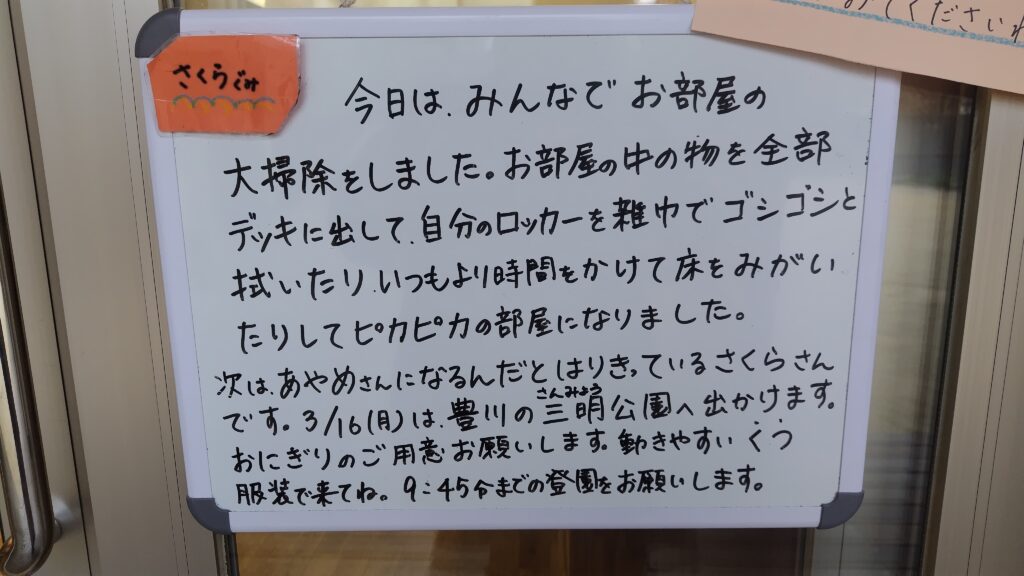 みてくださいね
さくらぐみ
今日は、みんなでお部屋の
大掃除をしました。お部屋の中の物を全部
デッキに出して、自分のロッカーを雑巾でゴシゴシと
拭いたり、いつもより時間をかけて床をみがい
たりしてピカピカの部屋になりました。
次は、あやめさんになるんだとはりきっているさくらさん
です。3/16(月)は、豊川の三明公園へ出かけます。
さんみょう
おにぎりのご用意お願いします。動きやすいくつ
服装で来てね。9:45分までの登園をお願いします。